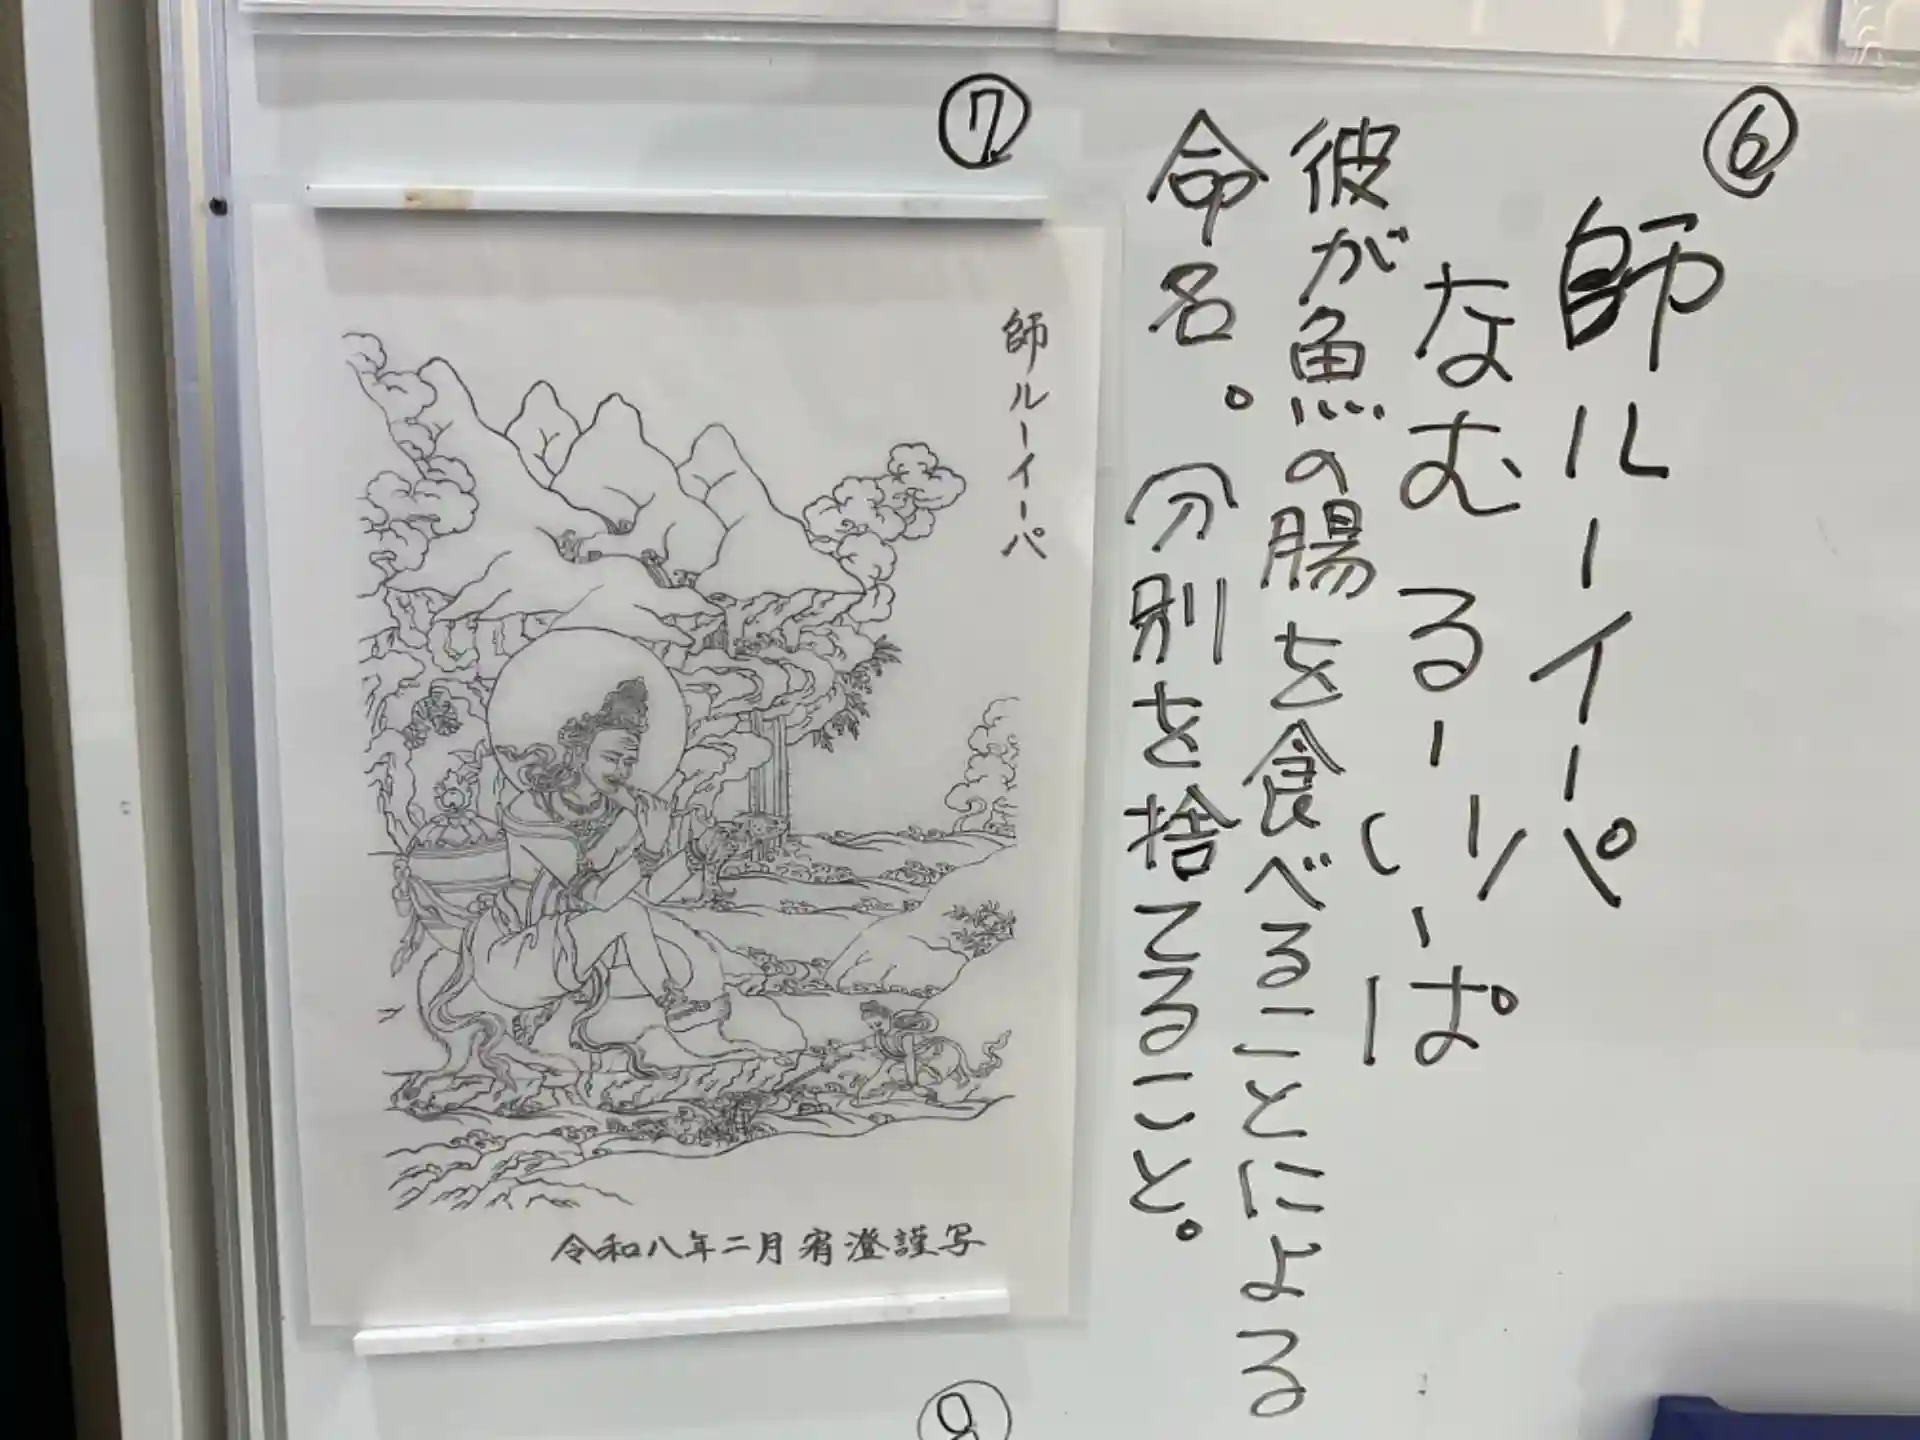 ⑥
師ルーイーパ
なむるーいーぱ
ルーイーパ
彼が魚の腸を食べることによる
命名。分別を捨てること。
⑦
師ルーイーパ
令和八年二月宥澄謹写